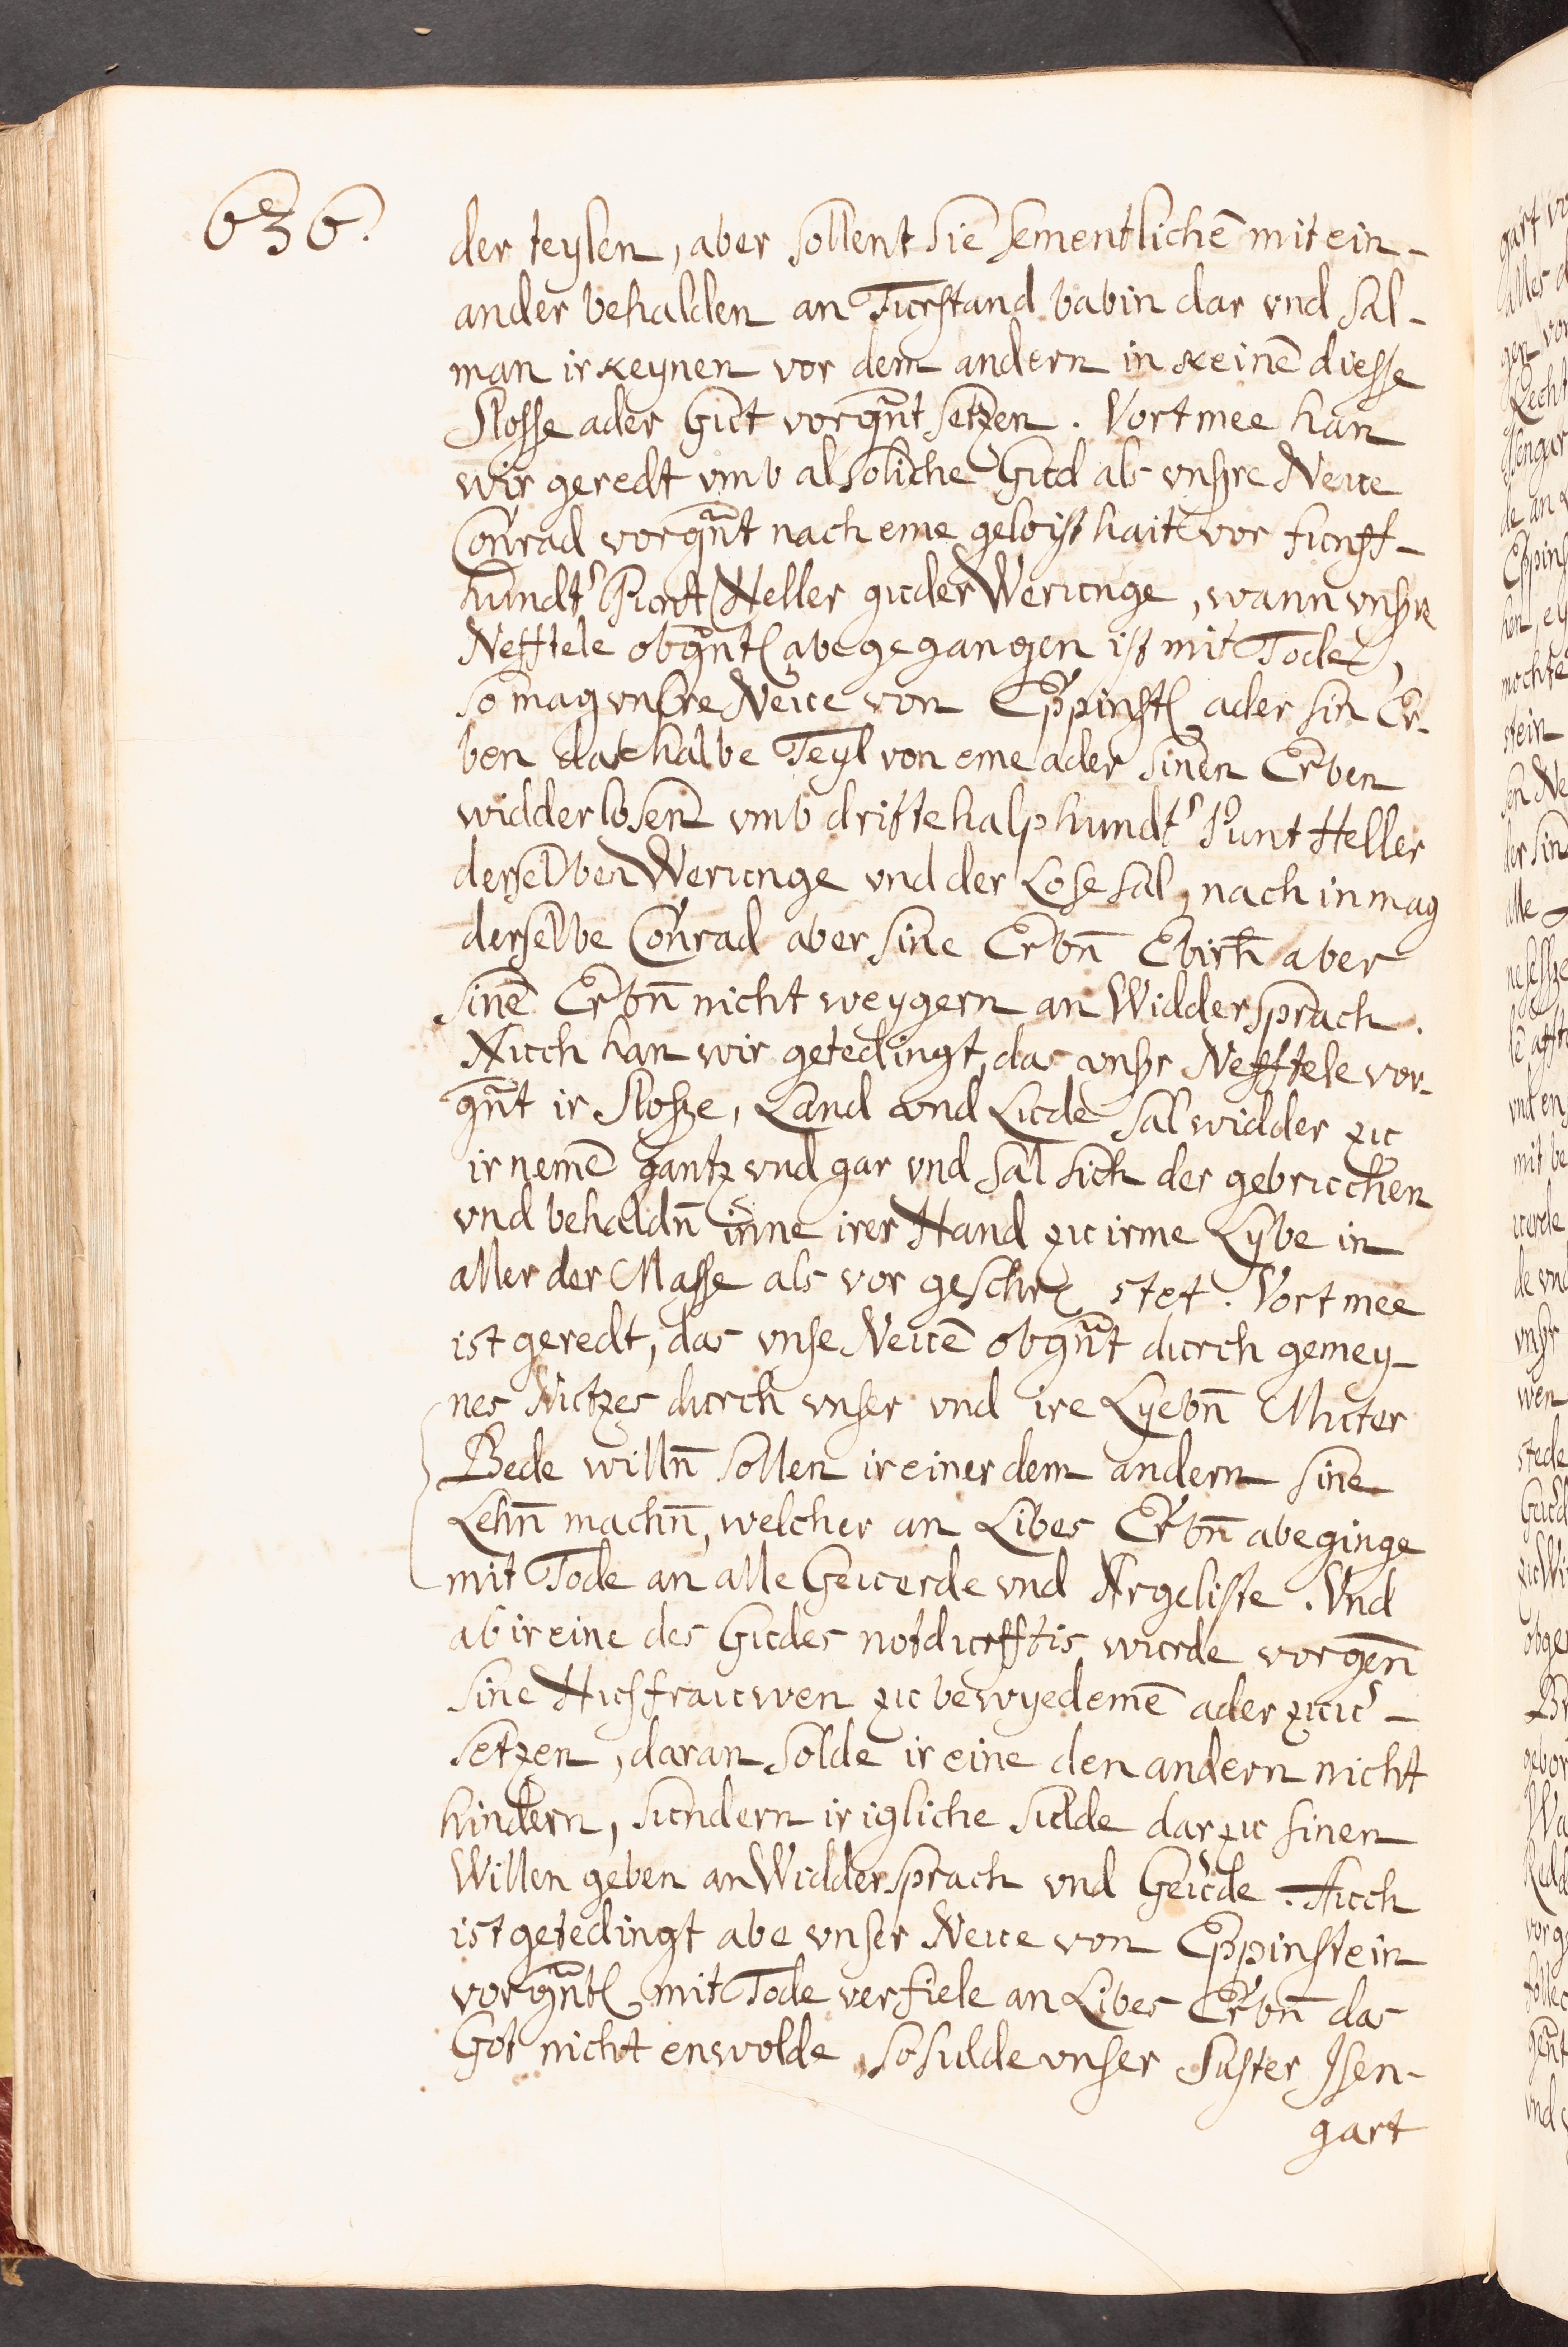 636.
der teylen, aber sollent sie sementlichē mit ein-
ander behalden an Furstand babin dar vnd sal-
man ir keynen vor dem andern in keinē diesse
Slosse ader Gut vorgn̄t setzen. Vortmee han
wir geredt vmb alsoliche Gud als vnsre Neue
Conrad vorgn̄t nach eme geloist hait vor funff-
hundt Punt Heller guder Werunge, wann vnsre
Nefftele obgn̄t abegegangen ist mit Tode,
so mag vnsre Neue von Eppinst ader sin Er-
ben das halbe Teyl von eme ader sinen Erben
widder losen vmb drittehalphundt Punt Heller
derselben Werunge vnd der Lose sal, nach in mag
derselbe Conrad aber sine Erbn̄ Ebirh̄ aber
sinē Erbn̄ nicht weygern an Widdersprach.
Auch han wir getedingt, das vnsr Nefftele vor-
gn̄t ir Slosze, Land vnd Lude sal widder zu
ir nemē gantz vnd gar vnd sal sich der gebruchen
vnd behaldn̄ inne irer Hand zu irme Lybe in
aller der Masse als vor geschr stet. Vortmee
ist geredt, das vnse Neuē obgn̄t durch gemey-
nes Nutzes durch vnser vnd ire Lyebn̄ Muter
Bede willn̄ sollen ir einer dem andern sine
Lehn̄ machn̄, welcher an Libes Erbn̄ abeginge
mit Tode an alle Geuerde vnd Argeliste. Vnd
ab ir eine des Gudes notdurfftis wurde vorgen̄
sine Husfrauwen zu bewyedemē ader zuu-
setzen, daran solde ir eine den andern nicht
hindern, sundern ir igliche sulde darzu sinen
Willen geben an Widdersprach vnd Geude. Auch
ist getedingt abe vnser Neue von Eppinstein
vorgn̄t mit Tode verfiele an Libes Erbn̄ das
Got nicht enwolde, so sulde vnser Suster Isen-
gart